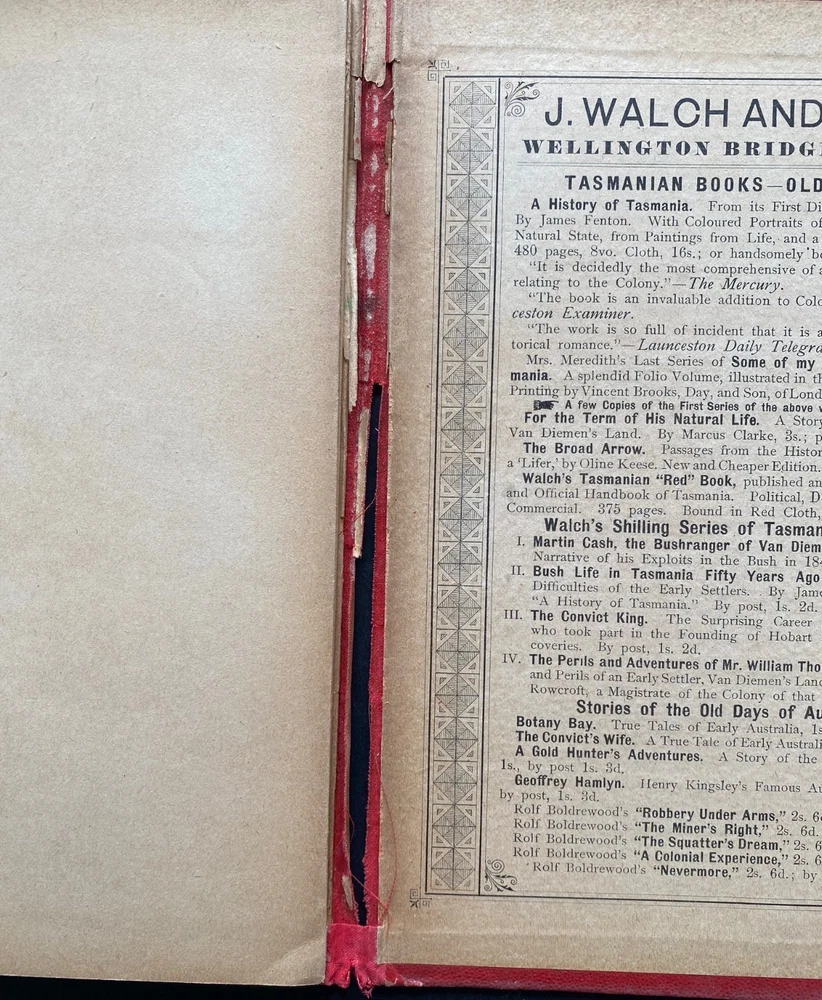 J. WALCH AND
WELLINGTON BRIDG
TASMANIAN BOOKS—OLD
A History of Tasmania. From its First Di
By James Fenton. With Coloured Portraits of
Natural State, from Paintings from Life, and a
480 pages, 8vo. Cloth, 16s.; or handsomely be
"It is decidedly the most comprehensive of a
relating to the Colony."—The Mercury.
"The book is an invaluable addition to Colo
ceston Examiner.
"The work is so full of incident that it is a
torical romance."—Launceston Daily Telegra
Mrs. Meredith's Last Series of Some of my
mania. A splendid Folio Volume, illustrated in th
Printing by Vincent Brooks, Day, and Son, of Lond
☛ A few Copies of the First Series of the above w
For the Term of His Natural Life. A Story
Van Diemen's Land. By Marcus Clarke, 3s.; p
The Broad Arrow. Passages from the Histor
a 'Lifer,' by Oline Keese. New and Cheaper Edition.
Walch's Tasmanian "Red" Book, published an
and Official Handbook of Tasmania. Political, D
Commercial. 375 pages. Bound in Red Cloth,
Walch's Shilling Series of Tasman
I. Martin Cash, the Bushranger of Van Diem
Narrative of his Exploits in the Bush in 184
II. Bush Life in Tasmania Fifty Years Ago
Difficulties of the Early Settlers. By Jame
"A History of Tasmania." By post, 1s. 2d.
III. The Convict King. The Surprising Career
who took part in the Founding of Hobart
coveries. By post, 1s. 2d.
IV. The Perils and Adventures of Mr. William Tho
and Perils of an Early Settler, Van Diemen's Land
Rowcroft, a Magistrate of the Colony of that
Stories of the Old Days of Au
Botany Bay. True Tales of Early Australia, 1s
The Convict's Wife. A True Tale of Early Australi
A Gold Hunter's Adventures. A Story of the
1s., by post 1s. 3d.
Geoffrey Hamlyn. Henry Kingsley's Famous Au
by post, 1s. 3d.
Rolf Boldrewood's "Robbery Under Arms," 2s. 6d
Rolf Boldrewood's "The Miner's Right," 2s. 6d.
Rolf Boldrewood's "The Squatter's Dream," 2s. 6
Rolf Boldrewood's "A Colonial Experience," 2s. 6
Rolf Boldrewood's "Nevermore," 2s. 6d.; by